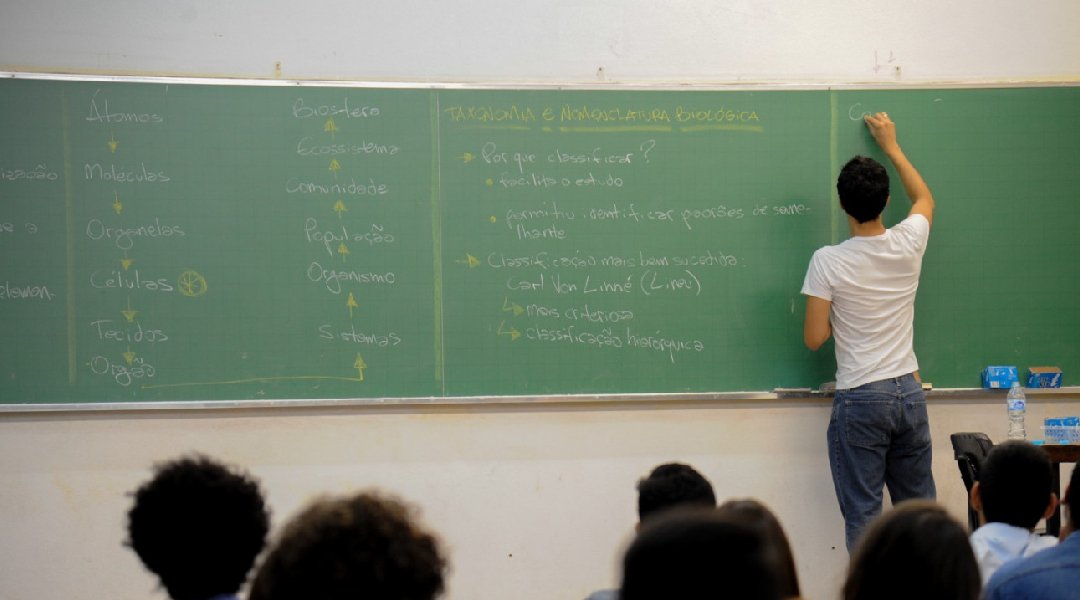 ização
e a
Átomos
Moléculas
Organelas
Células
Tecidos
Órgão
Biosfera
Ecossistema
Comunidade
População
Organismo
Sistemas
TAXONOMIA e NOMENCLATURA BIOLÓGICA
Por que classificar?
facilita o estudo
permitiu identificar padrões de seme-
lhante
Classificação mais bem sucedida:
Carl Von Linné (Lineu)
mais criteriosa
classificação hierárquica